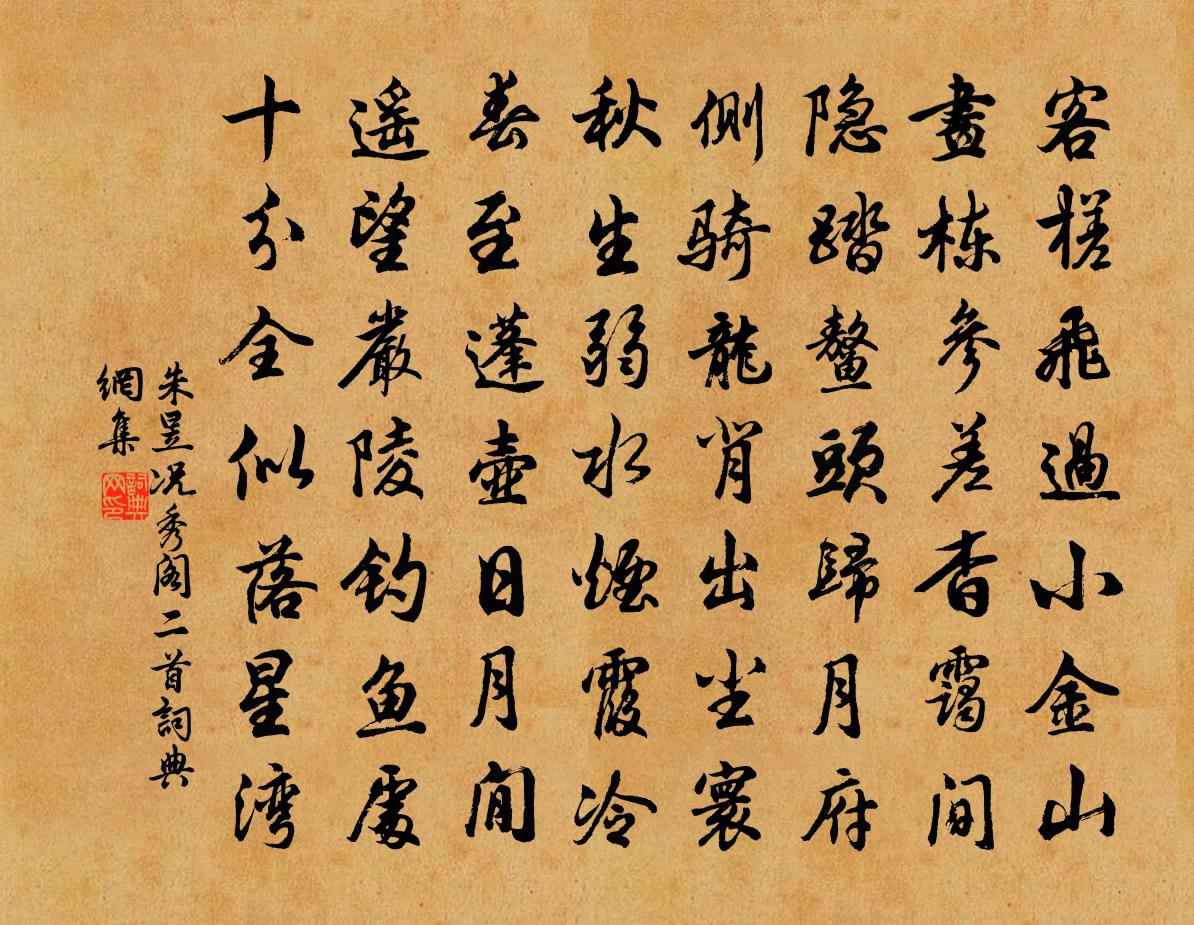 客槎飛過小金山
畫栋參差杳靄间
隐踏鳌頭歸月府
側骑龍背出尘寰
秋生弱水煙霞冷
春至蓬壶日月閒
遥望嚴陵钓鱼處
十分全似落星湾
朱昱况秀阁二首詞典
網集
詞典
网印